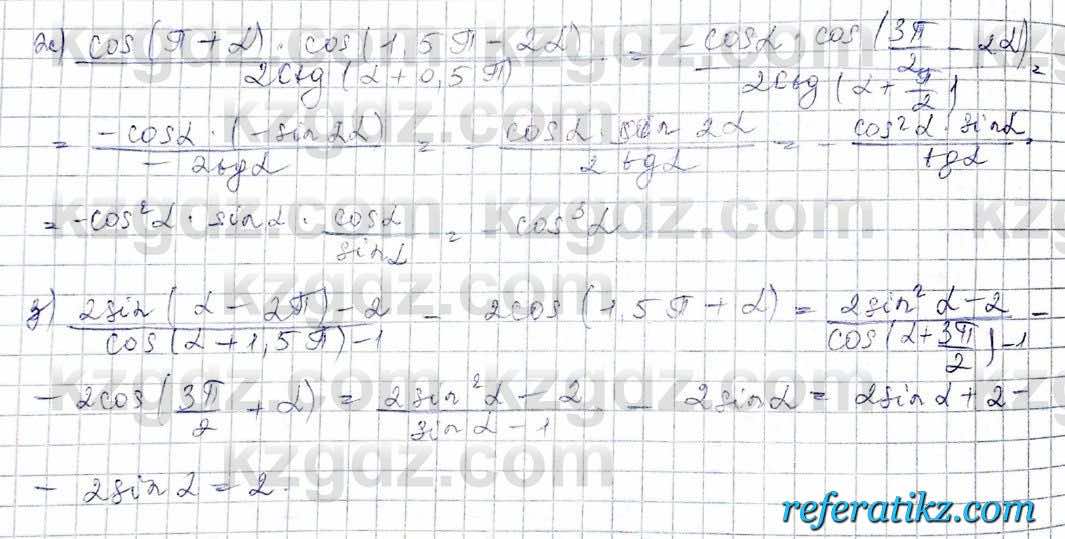 ж) cos(π+α)·cos(1,5π-2α) / 2ctg(α+0,5π) = -cosα·cos(3π/2-2α) / 2ctg(α+π/2) =
= -cosα·(-sin2α) / -2tgα = - cosα·sin2α / 2tgα = - cos²α·sinα / tgα =
= -cos²α·sinα·cosα/sinα = -cos³α
з) 2sin(α-2π)-2 / cos(α+1,5π)-1 - 2cos(1,5π+α) = 2sin²α-2 / cos(α+3π/2)-1 -
- 2cos(3π/2+α) = 2sin²α-2 / sinα-1 - 2sinα = 2sinα+2-
- 2sinα=2.
kzgdz.com
referatikz.com